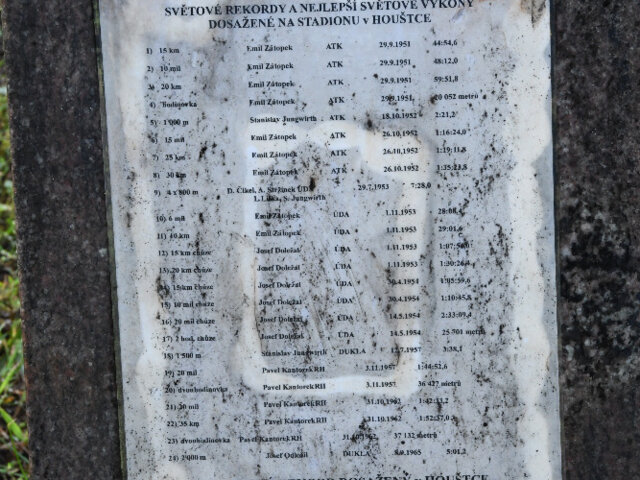 SVĚTOVÉ REKORDY A NEJLEPŠÍ SVĚTOVÉ VÝKONY
DOSAŽENÉ NA STADIONU v HOUŠTCE
1) 15 km Emil Zátopek ATK 29.9.1951 44:54,6
2) 10 mil Emil Zátopek ATK 29.9.1951 48:12,0
3) 20 km Emil Zátopek ATK 29.9.1951 59:51,8
4) hodinovka Emil Zátopek ATK 29.9.1951 20 052 metrů
5) 1 000 m Stanislav Jungwirth ATK 18.10.1952 2:21,2
6) 15 mil Emil Zátopek ATK 26.10.1952 1:16:24,0
7) 25 km Emil Zátopek ATK 26.10.1952 1:19:11,8
8) 30 km Emil Zátopek ATK 26.10.1952 1:35:23,8
9) 4 x 800 m D. Čikel, A. Stržínek ÚDA 29.7.1953 7:28,0
L. Liška, S. Jungwirth
10) 6 mil Emil Zátopek ÚDA 1.11.1953 28:08,4
11) 10 km Emil Zátopek ÚDA 1.11.1953 29:01,6
12) 15 km chůze Josef Doležal ÚDA 1.11.1953
13) 20 km chůze Josef Doležal ÚDA 1.11.1953 1:30:26,4
14) 15 km chůze Josef Doležal ÚDA 30.4.1954 1:05:59,6
15) 10 mil chůze Josef Doležal ÚDA 30.4.1954 1:10:45,8
16) 20 mil chůze Josef Doležal ÚDA 14.5.1954 2:33:09,4
17) 2 hod. chůze Josef Doležal ÚDA 14.5.1954 25 701 metrů
18) 1 500 m Stanislav Jungwirth DUKLA 12.7.1957 3:38,1
19) 20 mil Pavel Kantorek RH 3.11.1957 1:44:52,6
20) dvouhodinovka Pavel Kantorek RH 3.11.1957 36 427 metrů
21) 20 mil Pavel Kantorek RH 31.10.1962 1:42:33,2
22) 35 km Pavel Kantorek RH 31.10.1962 1:52:37,0
23) dvouhodinovka Pavel Kantorek RH 31.10.1962 37 132 metrů
24) 2 000 m Josef Odložil DUKLA 8.9.1965 5:01,2
DOSAŽENÝ v HOUŠTCE